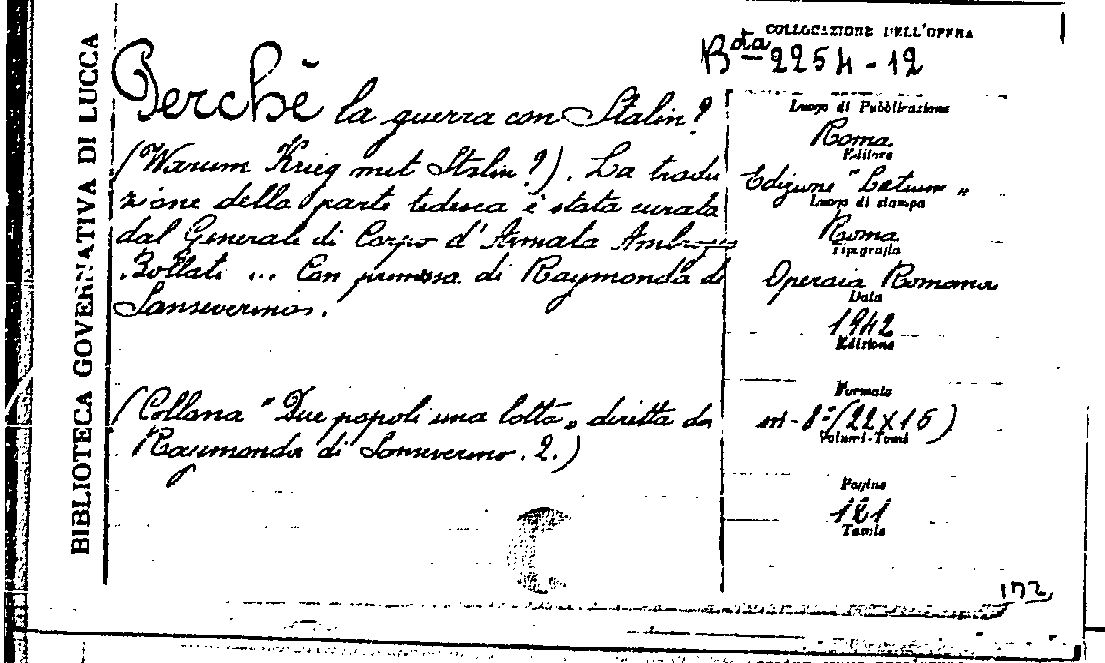 BIBLIOTECA GOVERNATIVA DI LUCCA
COLLOCAZIONE DELL'OPERA
Bta 2254-12
Perchè la guerra con Stalin?
(Warum Krieg met Stalin?). La tradu
zione della parte tedesca è stata curata
dal Generale di Corpo d'Armata Ambrogio
Bollati ... Con premessa di Raymonda di
Sanseverino.
(Collana "Due popoli una lotta" diretta da
Raymonda di Sanseverino. 2.)
Luogo di Pubblicazione
Roma
Editore
Edizione "Latium"
Luogo di stampa
Roma
Tipografia
Operaia Romana
Data
1942
Edizione
Formato
in-8° (22x16)
Volumi-Tomi
Pagine
121
Tavole
172